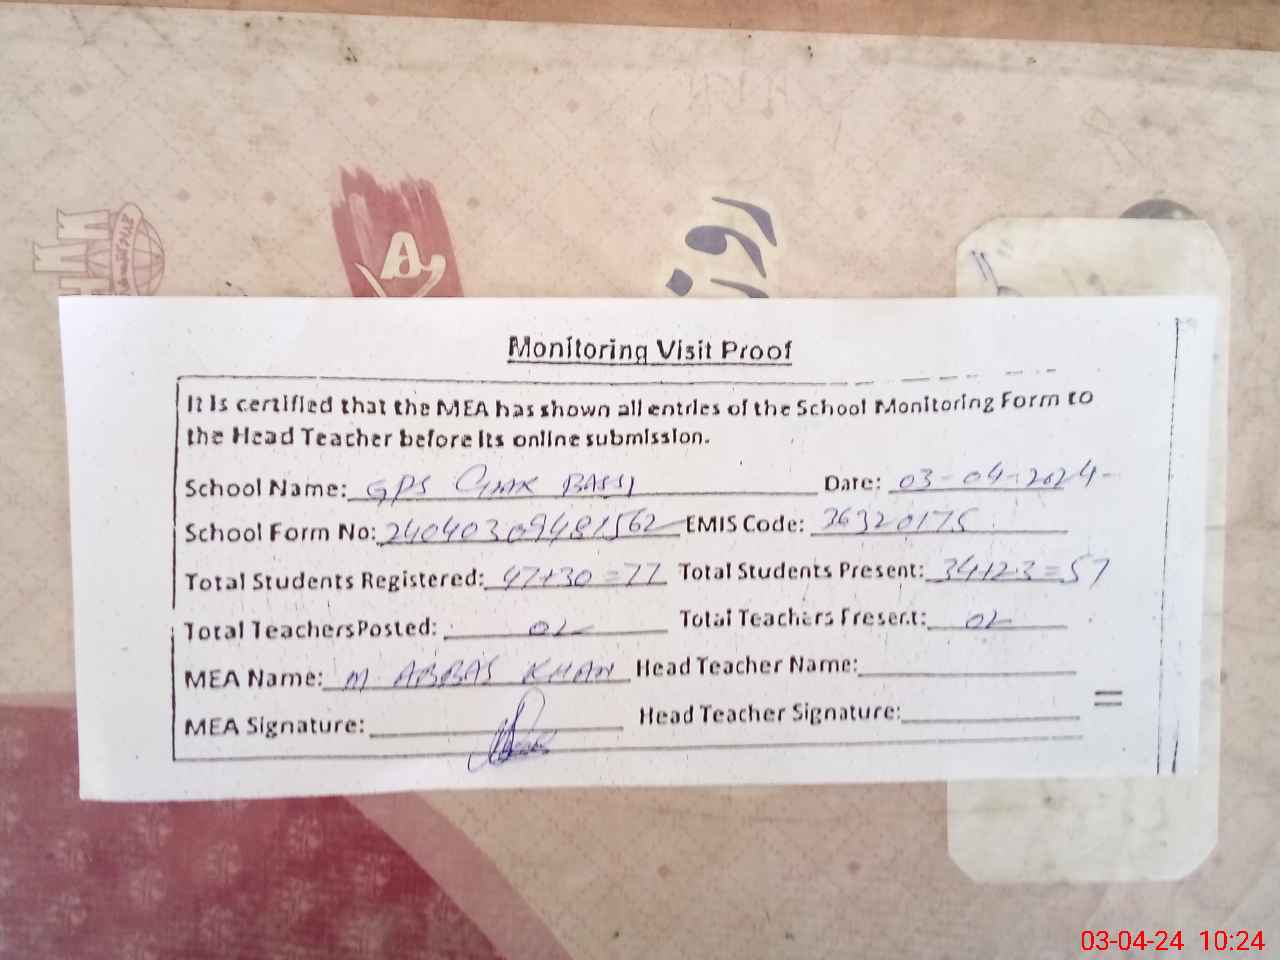 روز
Monitoring Visit Proof
It is certified that the MEA has shown all entries of the School Monitoring Form to
the Head Teacher before its online submission.
School Name: GPS CHAK BASSI Date: 03-04-2024
School Form No: 24040309481562 EMIS Code: 36320175
Total Students Registered: 47+30=77 Total Students Present: 34+23=57
Total Teachers Posted: 02 Total Teachers Present: 02
MEA Name: M. ABBAS KHAN Head Teacher Name:
MEA Signature: Head Teacher Signature:
03-04-24 10:24